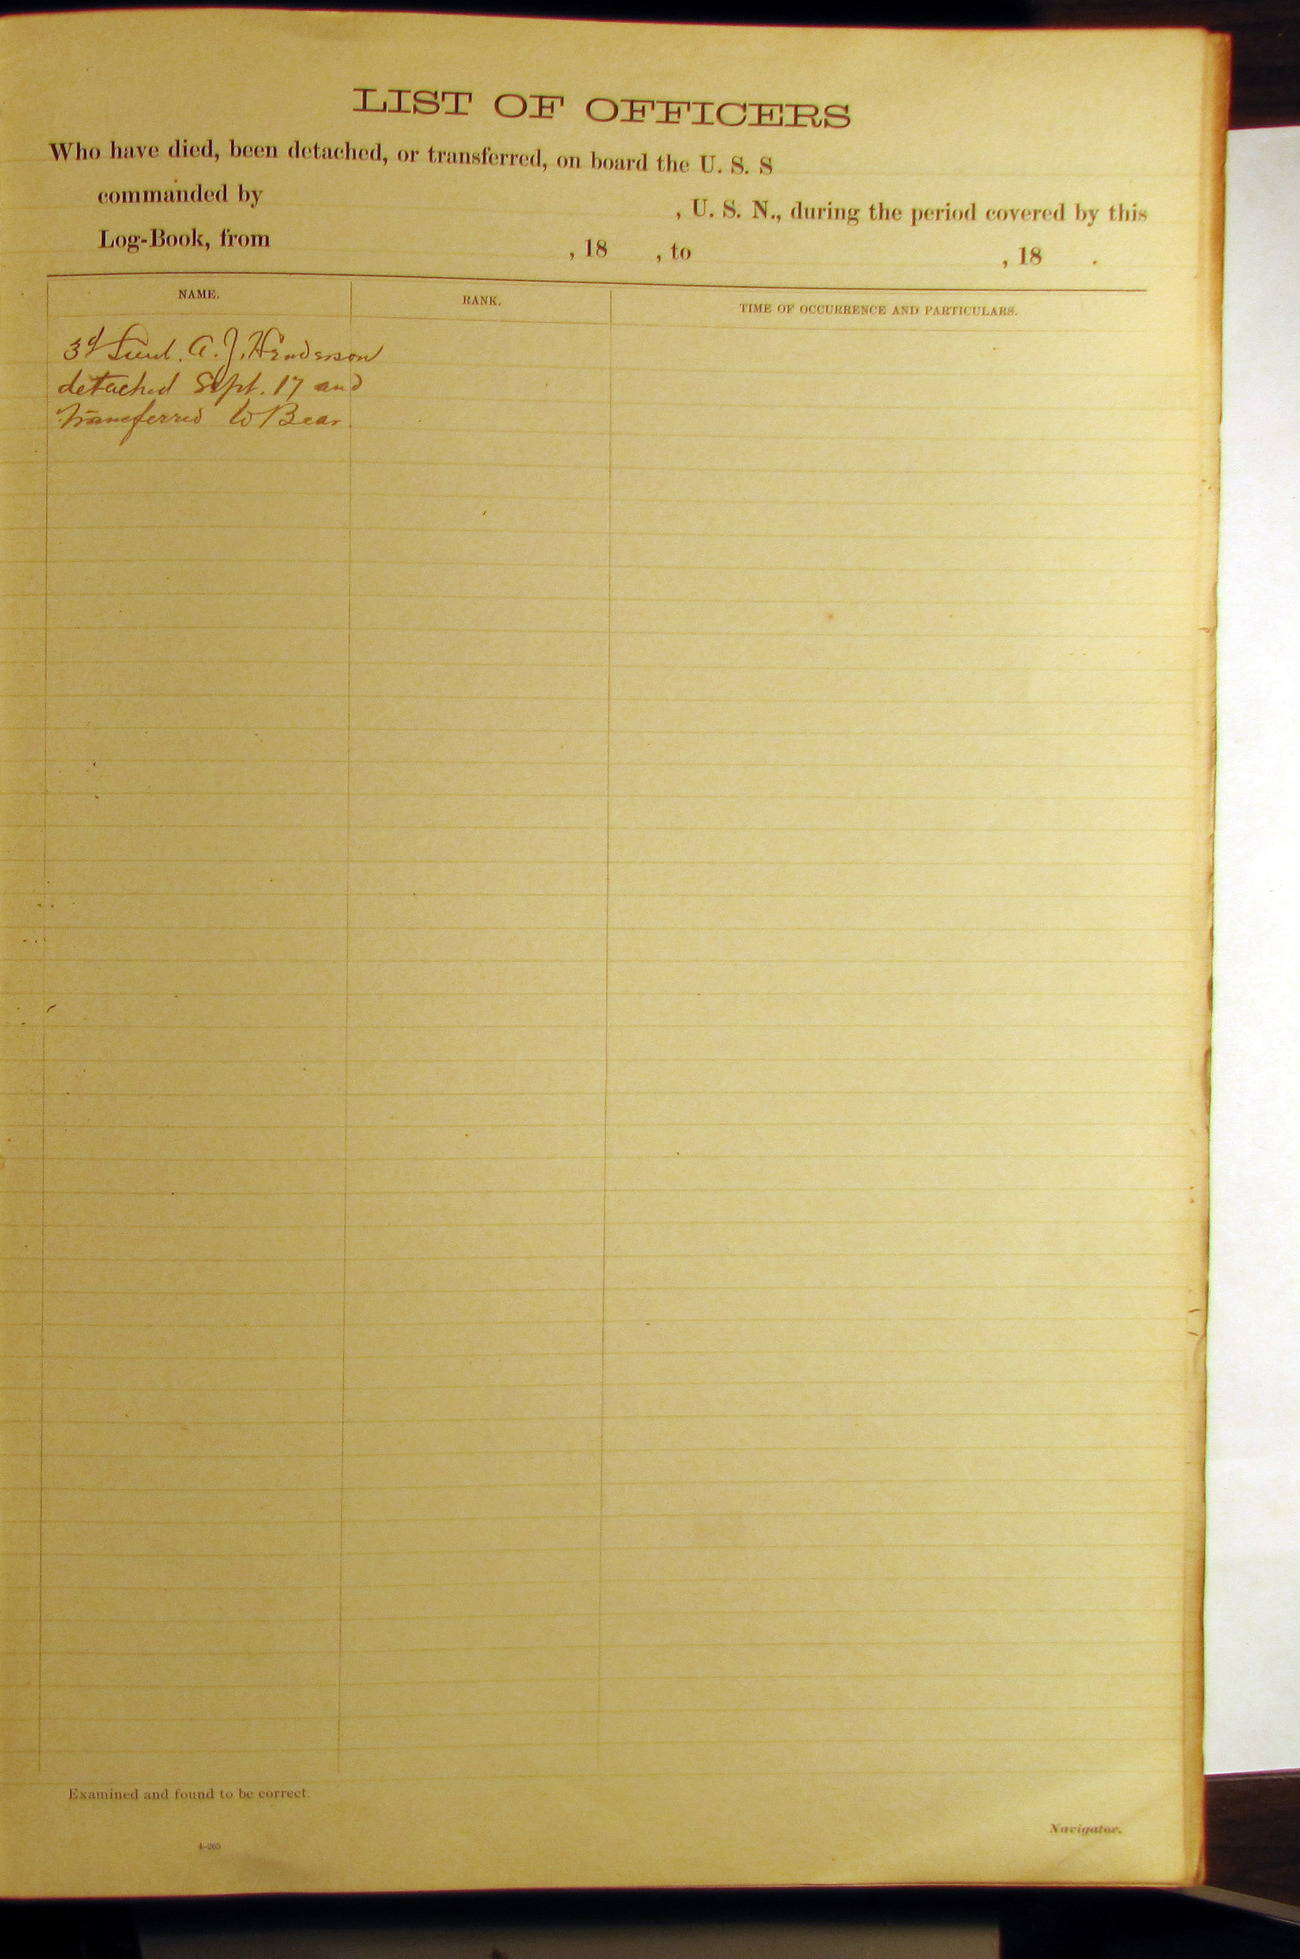 LIST OF OFFICERS
Who have died, been detached, or transferred, on board the U. S. S
commanded by , U. S. N., during the period covered by this
Log-Book, from , 18 , to , 18 .
NAME. RANK. TIME OF OCCURRENCE AND PARTICULARS.
3d Lieut. A. J. Henderson
detached Sept. 17 and
transferred to Bear.
Examined and found to be correct.
Navigator.
4-265